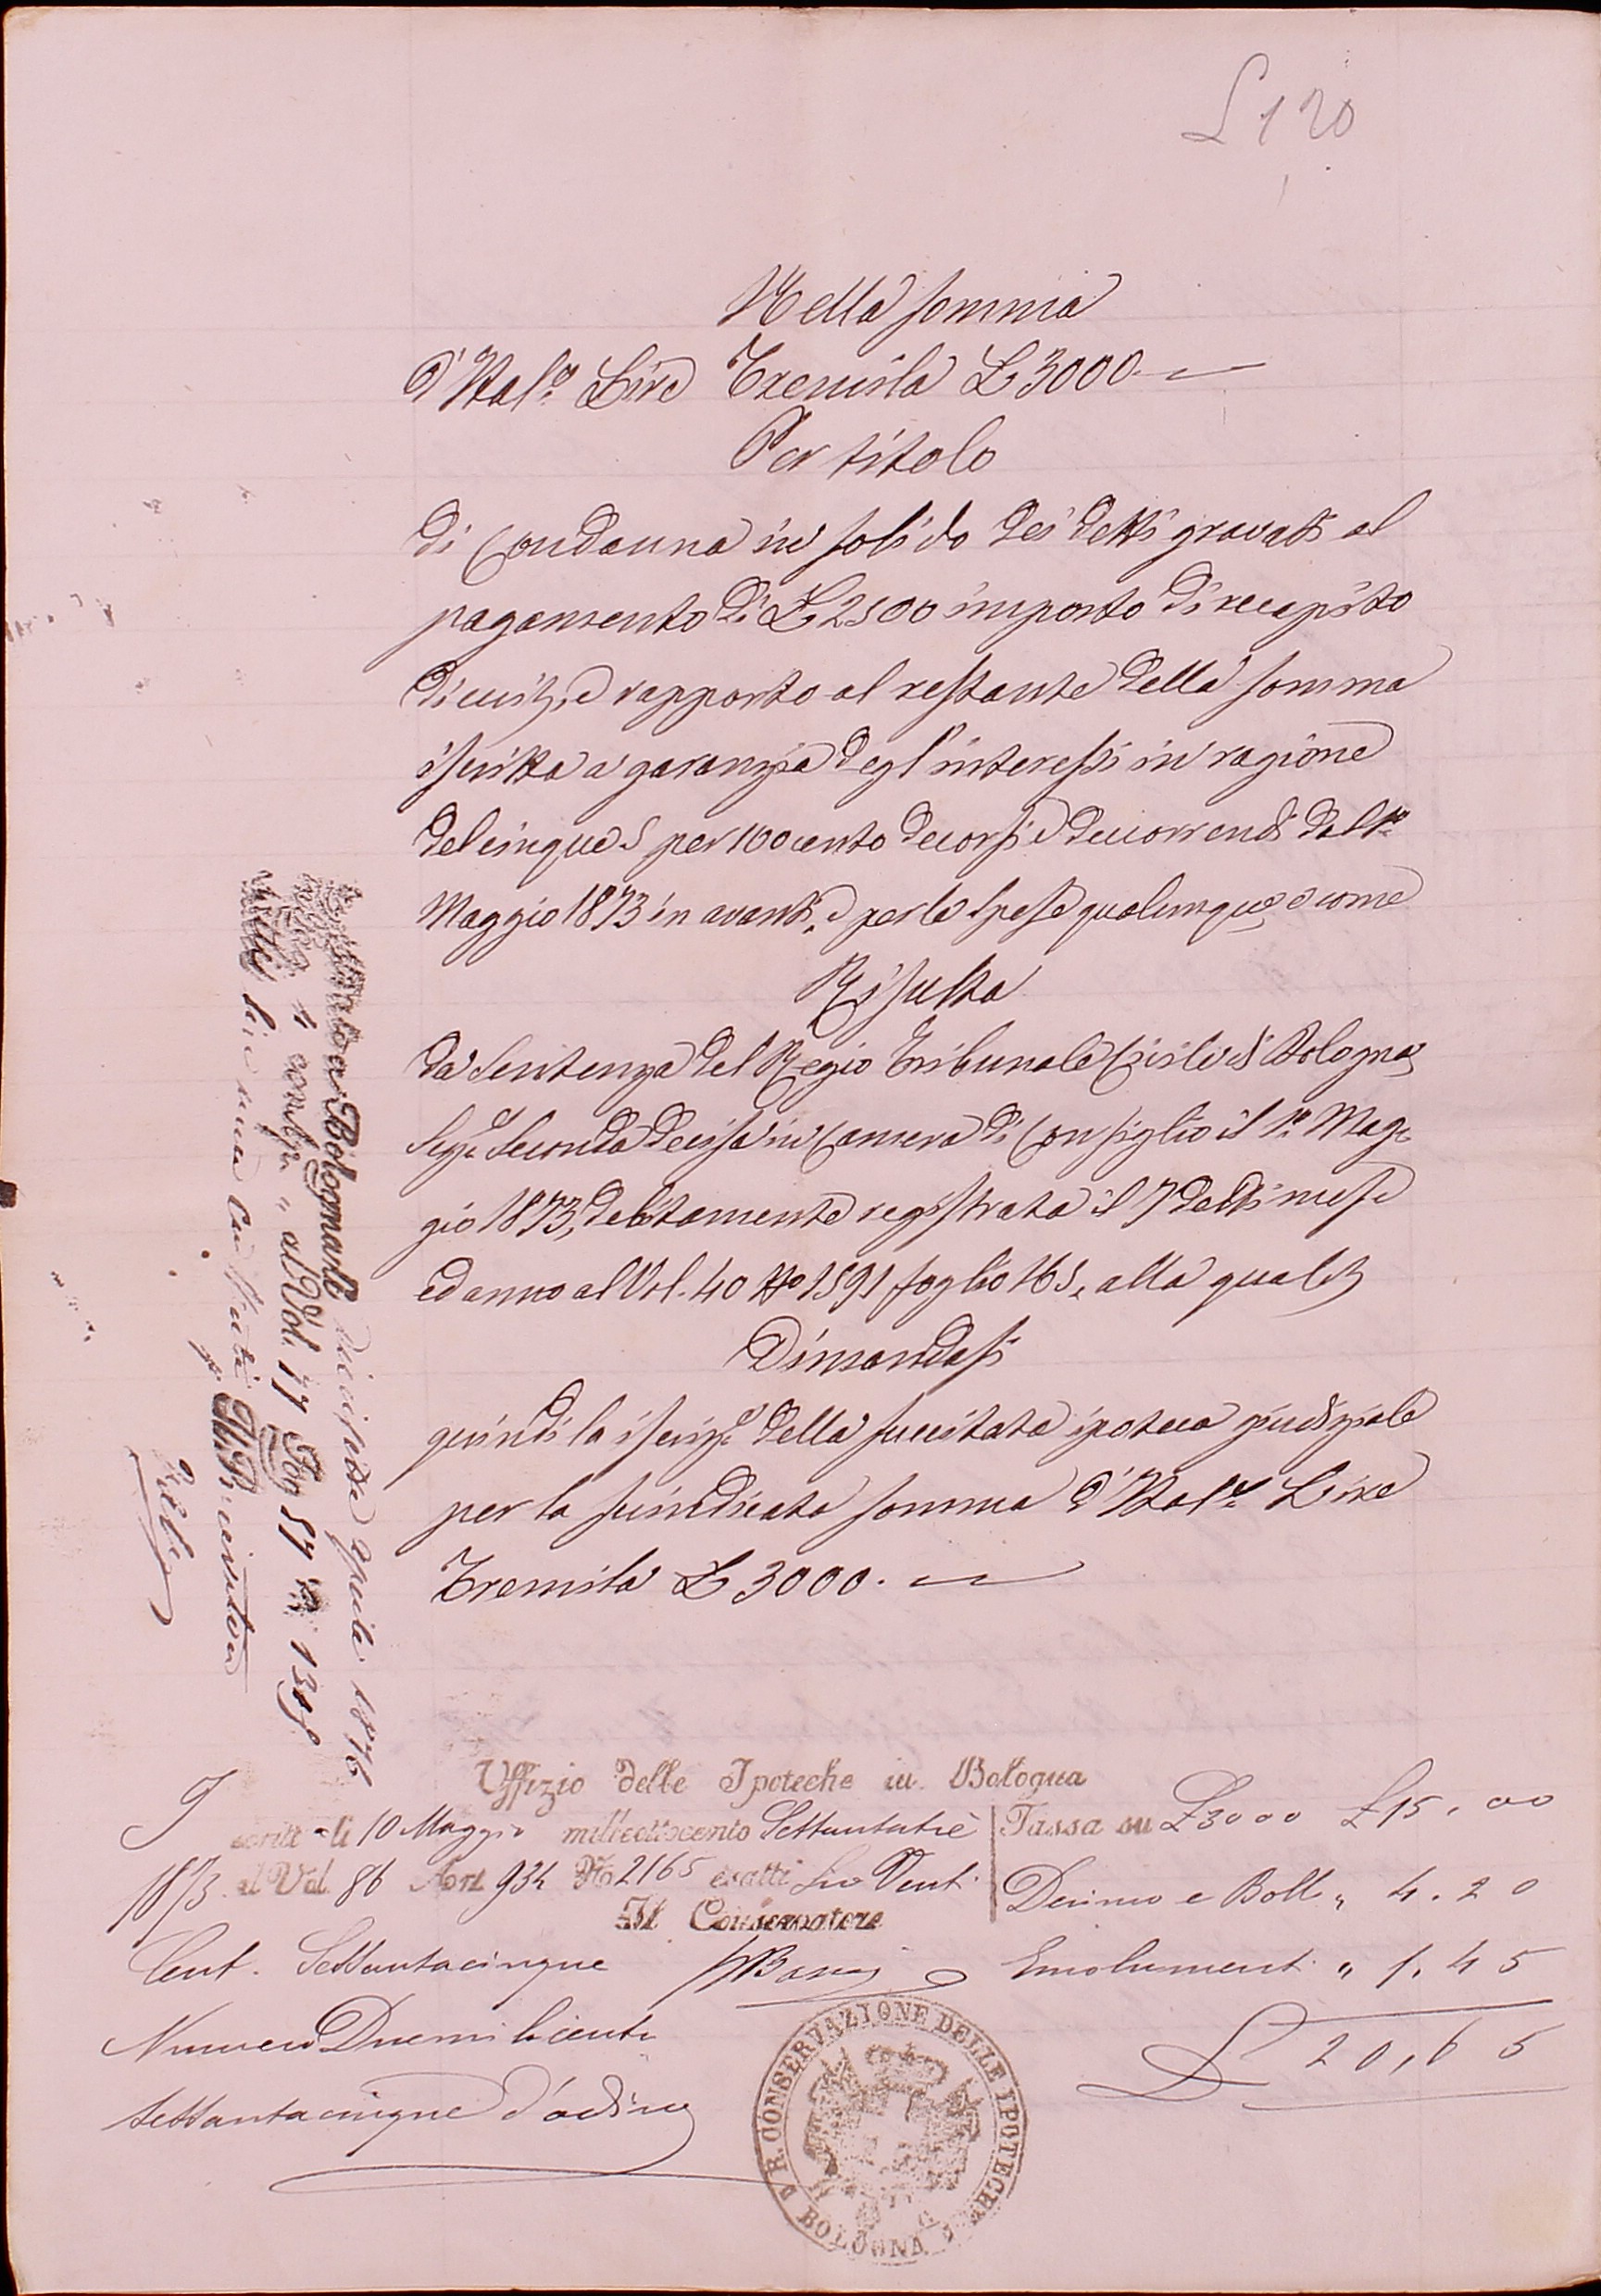 £ 120
Nella somma
d'Ital.e Lire Tremila £ 3000.—
Per titolo
di Condanna in solido dei detti gravati al
pagamento di £ 2500 importo di recapito
e rapporto al restante della somma
iscritta a garanzia degl'interessi in ragione
del cinque 5 per 100 cento decorsi e decorrendi dal 1.mo
Maggio 1873 in avanti, e per le spese qualunque e come
Risulta
da Sentenza del Regio Tribunale Civile di Bologna
Sez.e Seconda decisa in Camera di Consiglio il 1.mo Mag-
gio 1873, debitamente registrata il 7 detti mese
ed anno al Vol. 40 No 1591 foglio 165, alla quale
Dimandasi
quindi la iscriz.e della succitata ipoteca giudiziale
per la suindicata somma d'Ital.e Lire
Tremila £ 3000.—
Bologna li diciasette Aprile 1876
al Vol. 47 Fog 54 N. 1305
lire una
Il Ricevitore
Uffizio delle Ipoteche in Bologna
Iscritt a li 10 Maggio milleottocento Settantatrè
1873 al Vol. 86 Art. 934 No 2165 esatti Lire Vent.
Il Conservatore
Cent. Settantacinque
Numero Duemilacento
Settantacinque d'ordine
Tassa su £ 3000 £ 15.00
Decimo e Boll. " 4.20
Emolument. " 1.45
£ 20,65
R. CONSERVAZIONE DELLE IPOTECHE
BOLOGNA